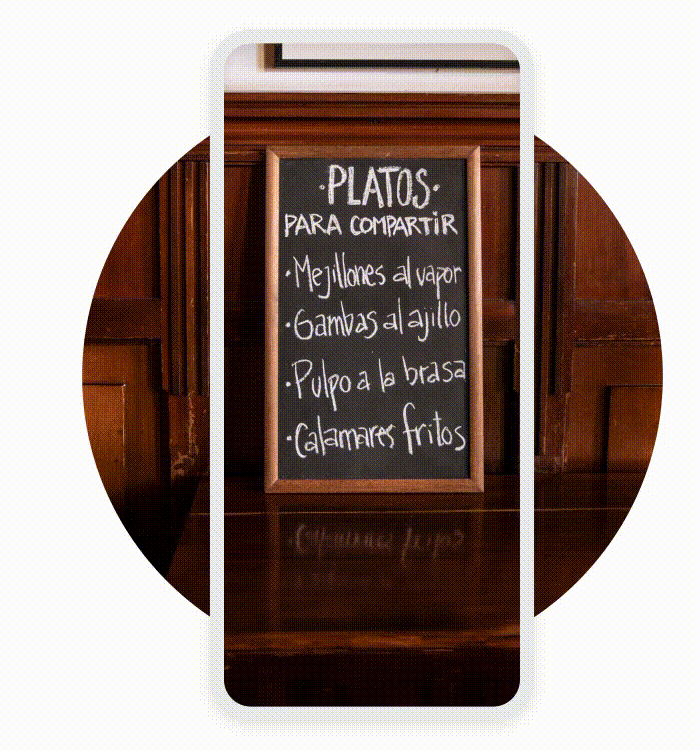 ·PLATOS·
PARA COMPARTIR
·Mejillones al vapor
·Gambas al ajillo
·Pulpo a la brasa
·Calamares fritos